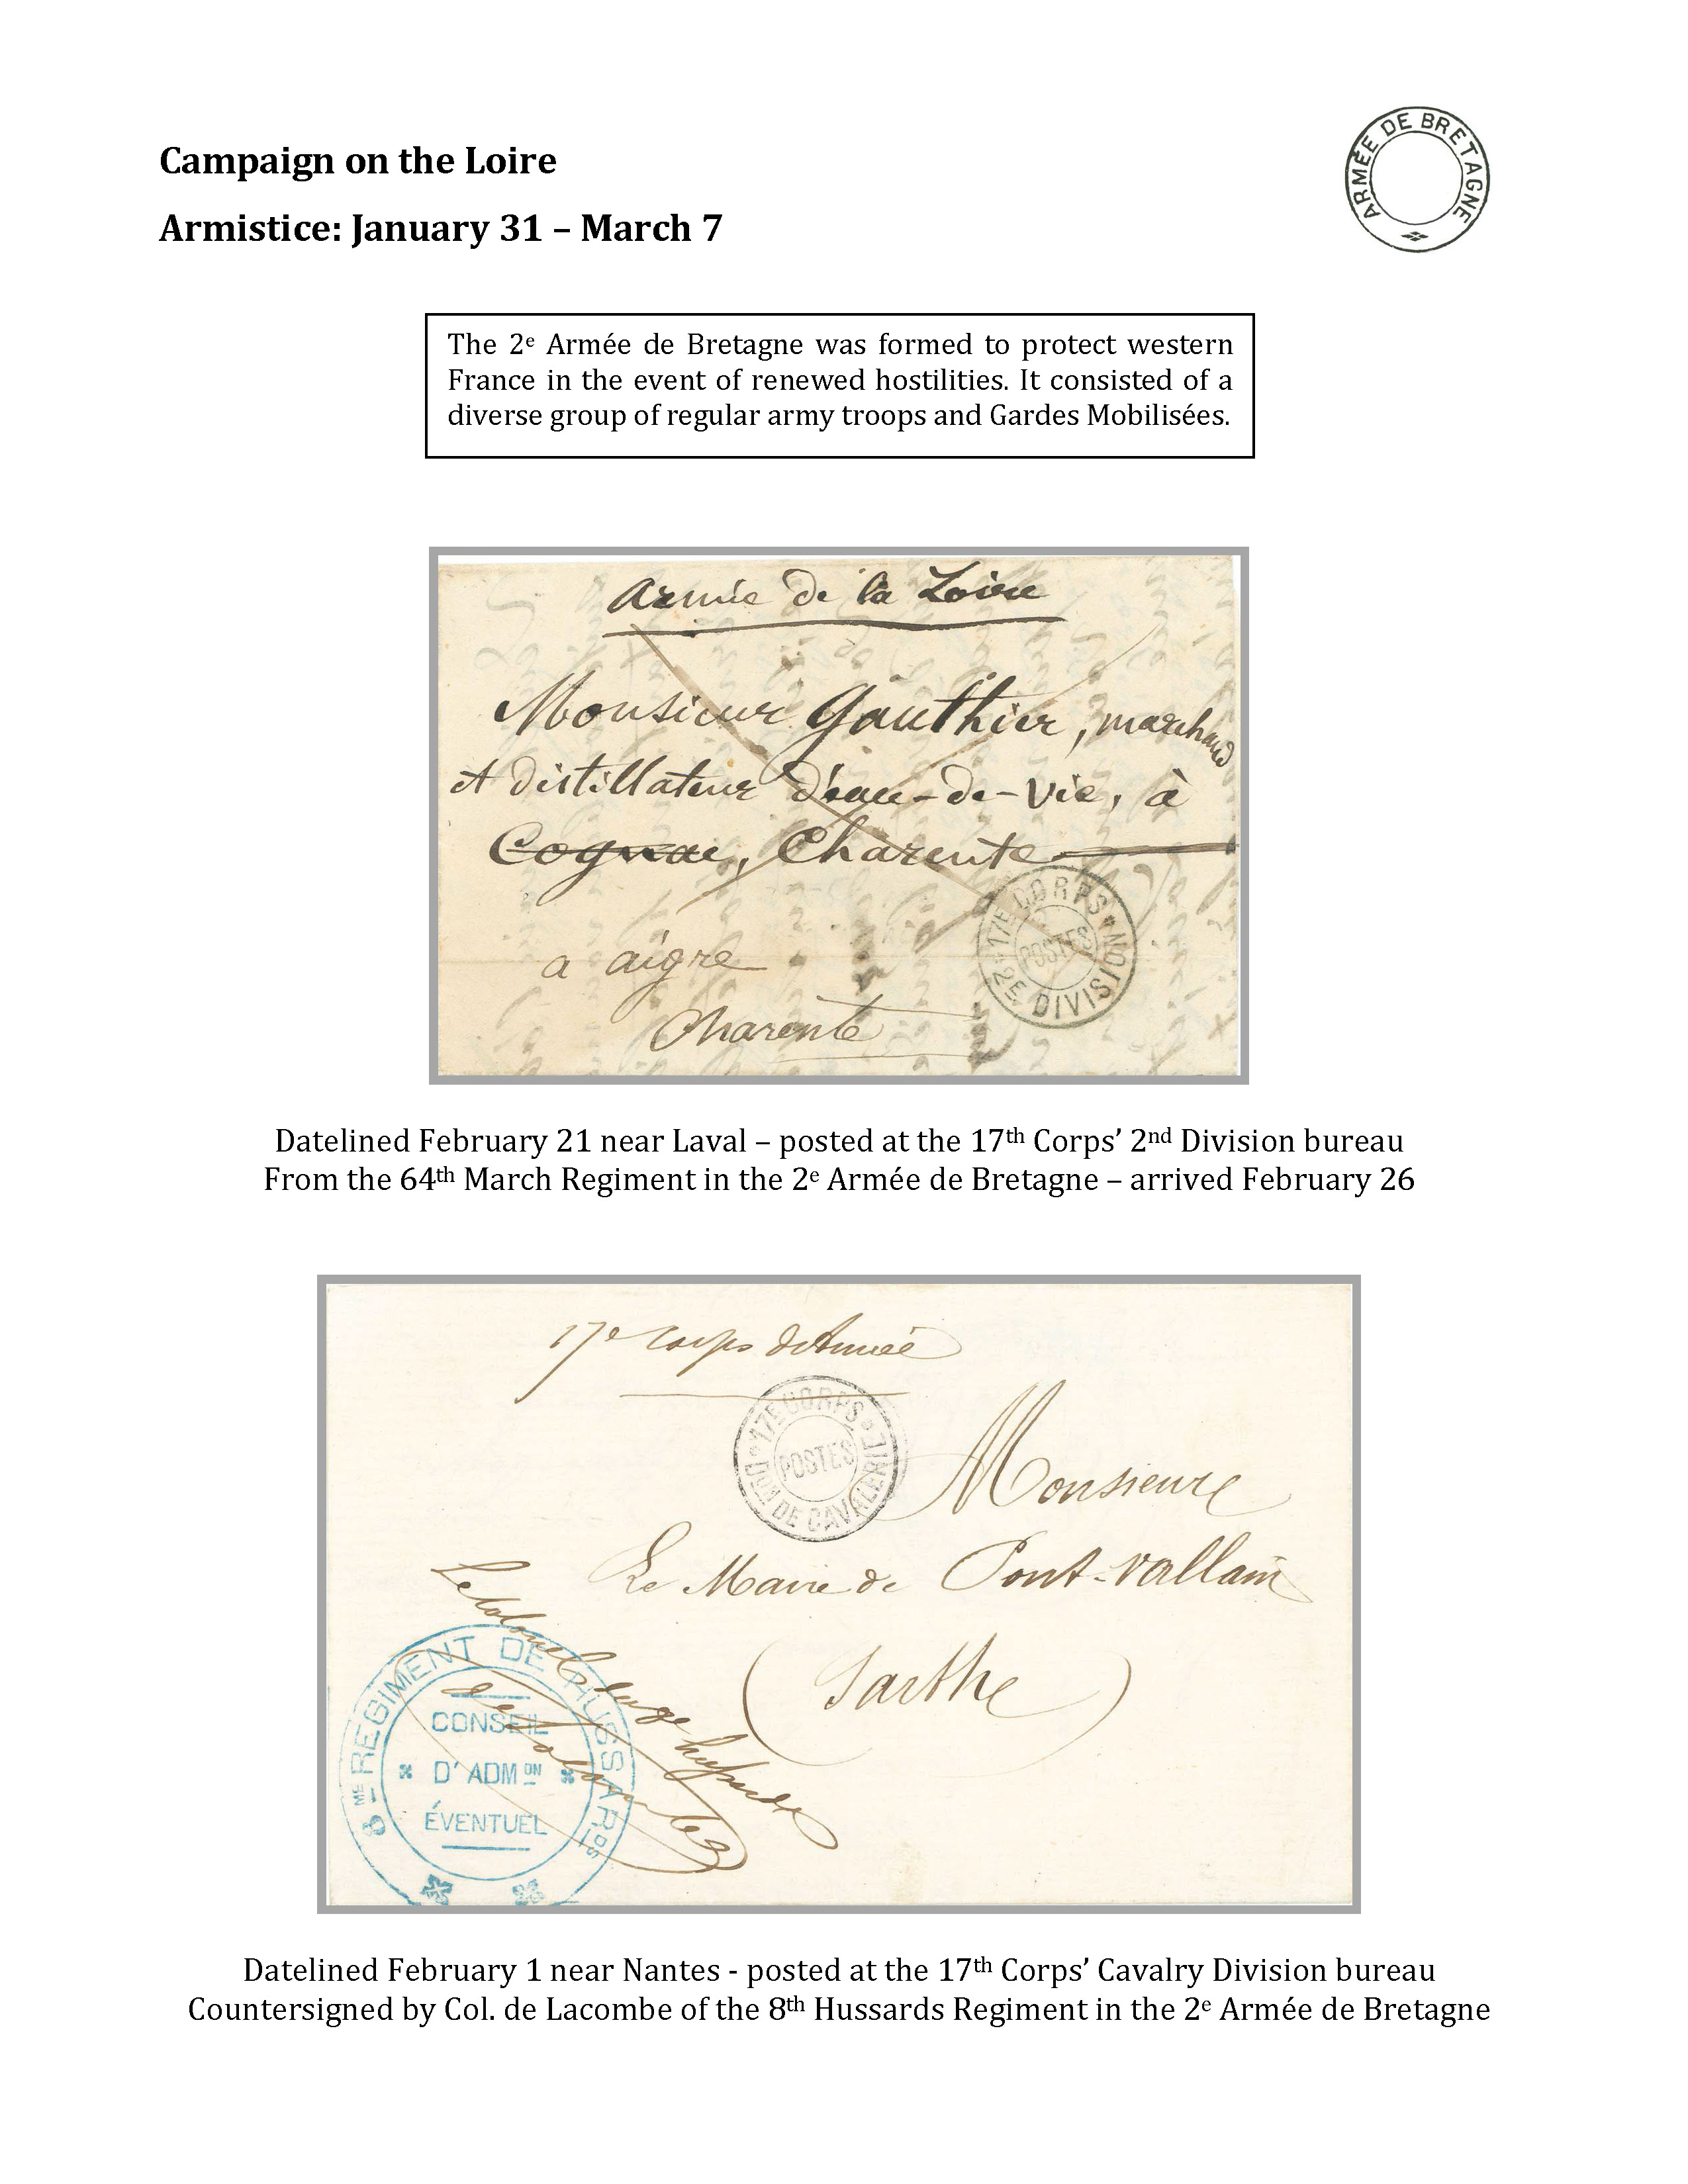 Campaign on the Loire
ARMÉE DE BRETAGNE
Armistice: January 31 – March 7
The 2e Armée de Bretagne was formed to protect western
France in the event of renewed hostilities. It consisted of a
diverse group of regular army troops and Gardes Mobilisées.
Armée de la Loire
Monsieur Gauthier, marchand
et distillateur d'eau-de-vie, à
Cognac, Charente
a aigre
Charente
17E CORPS
POSTES
2E DIVISION
Datelined February 21 near Laval – posted at the 17th Corps' 2nd Division bureau
From the 64th March Regiment in the 2e Armée de Bretagne – arrived February 26
17e Corps d'Armée
17E CORPS
POSTES
DON DE CAVALERIE
Monsieur
Le Maire de Pont-Vallain
(Sarthe)
Le Colonel
8ME REGIMENT DE HUSSARDS
CONSEIL
D'ADMON
ÉVENTUEL
Datelined February 1 near Nantes - posted at the 17th Corps' Cavalry Division bureau
Countersigned by Col. de Lacombe of the 8th Hussards Regiment in the 2e Armée de Bretagne